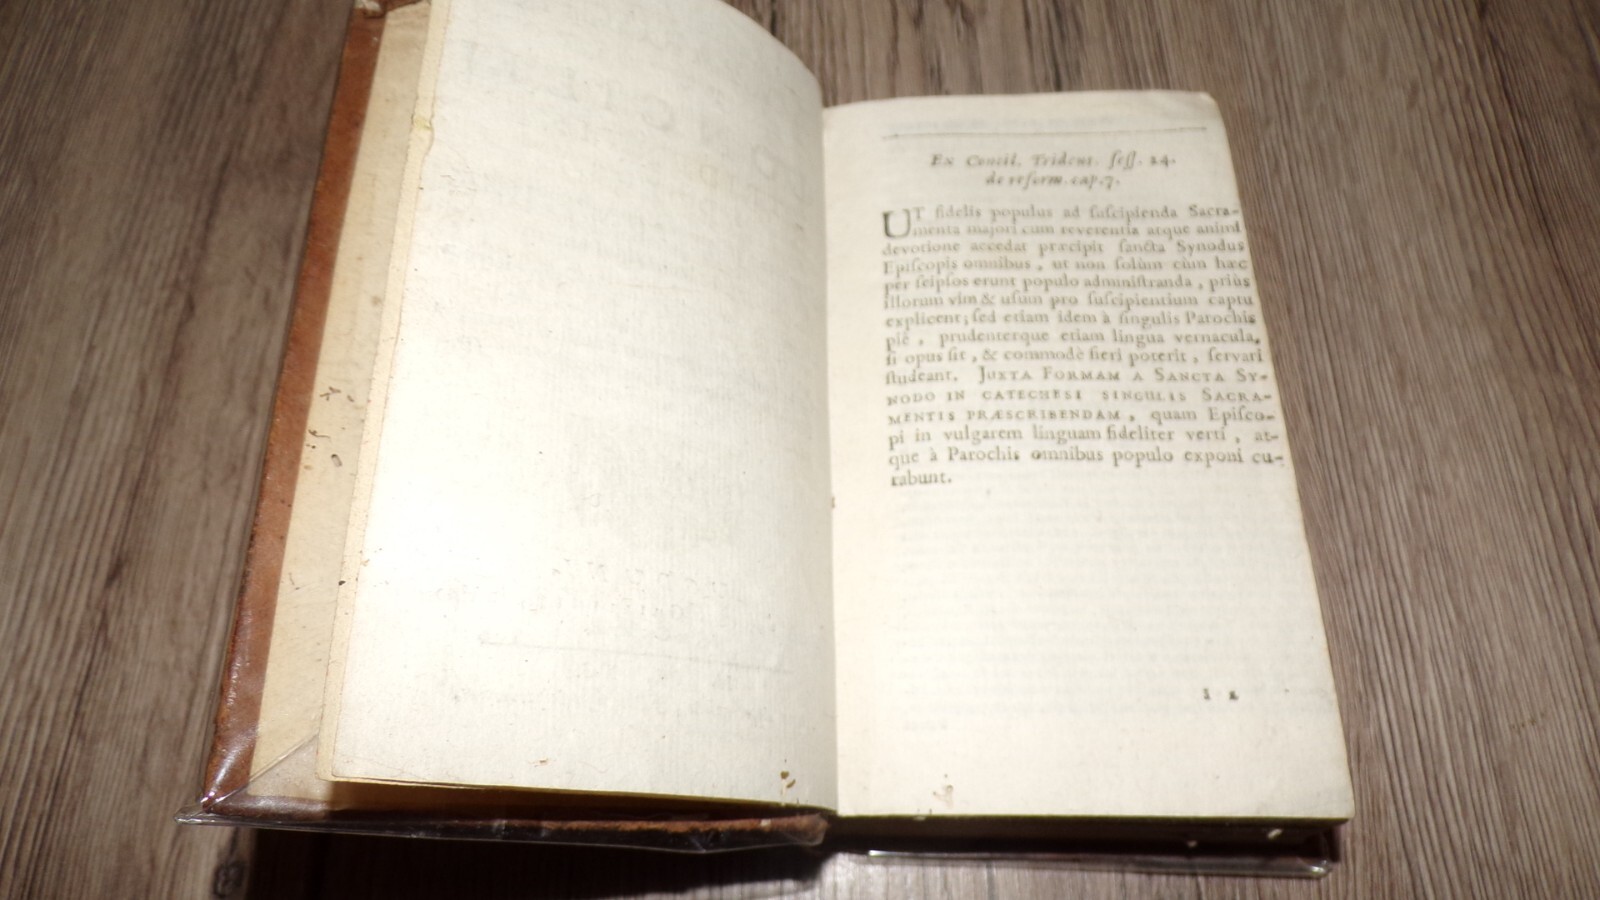 Ex Concil. Trident. ſeſſ. 24.
de reform. cap. 7.
UT fidelis populus ad ſuſcipienda Sacra-
menta majori cum reverentia atque animi
devotione accedat præcipit ſancta Synodus
Epiſcopis omnibus, ut non ſolùm cùm hæc
per ſeipſos erunt populo adminiſtranda, priùs
illorum vim & uſum pro ſuſcipientium captu
explicent; ſed etiam idem à ſingulis Parochis
piè, prudenterque etiam lingua vernacula,
ſi opus ſit, & commodè fieri poterit, ſervari
ſtudeant. JUXTA FORMAM A SANCTA SY-
NODO IN CATECHESI SINGULIS SACRA-
MENTIS PRÆSCRIBENDAM, quam Epiſco-
pi in vulgarem linguam fideliter verti, at-
que à Parochis omnibus populo exponi cu-
rabunt.